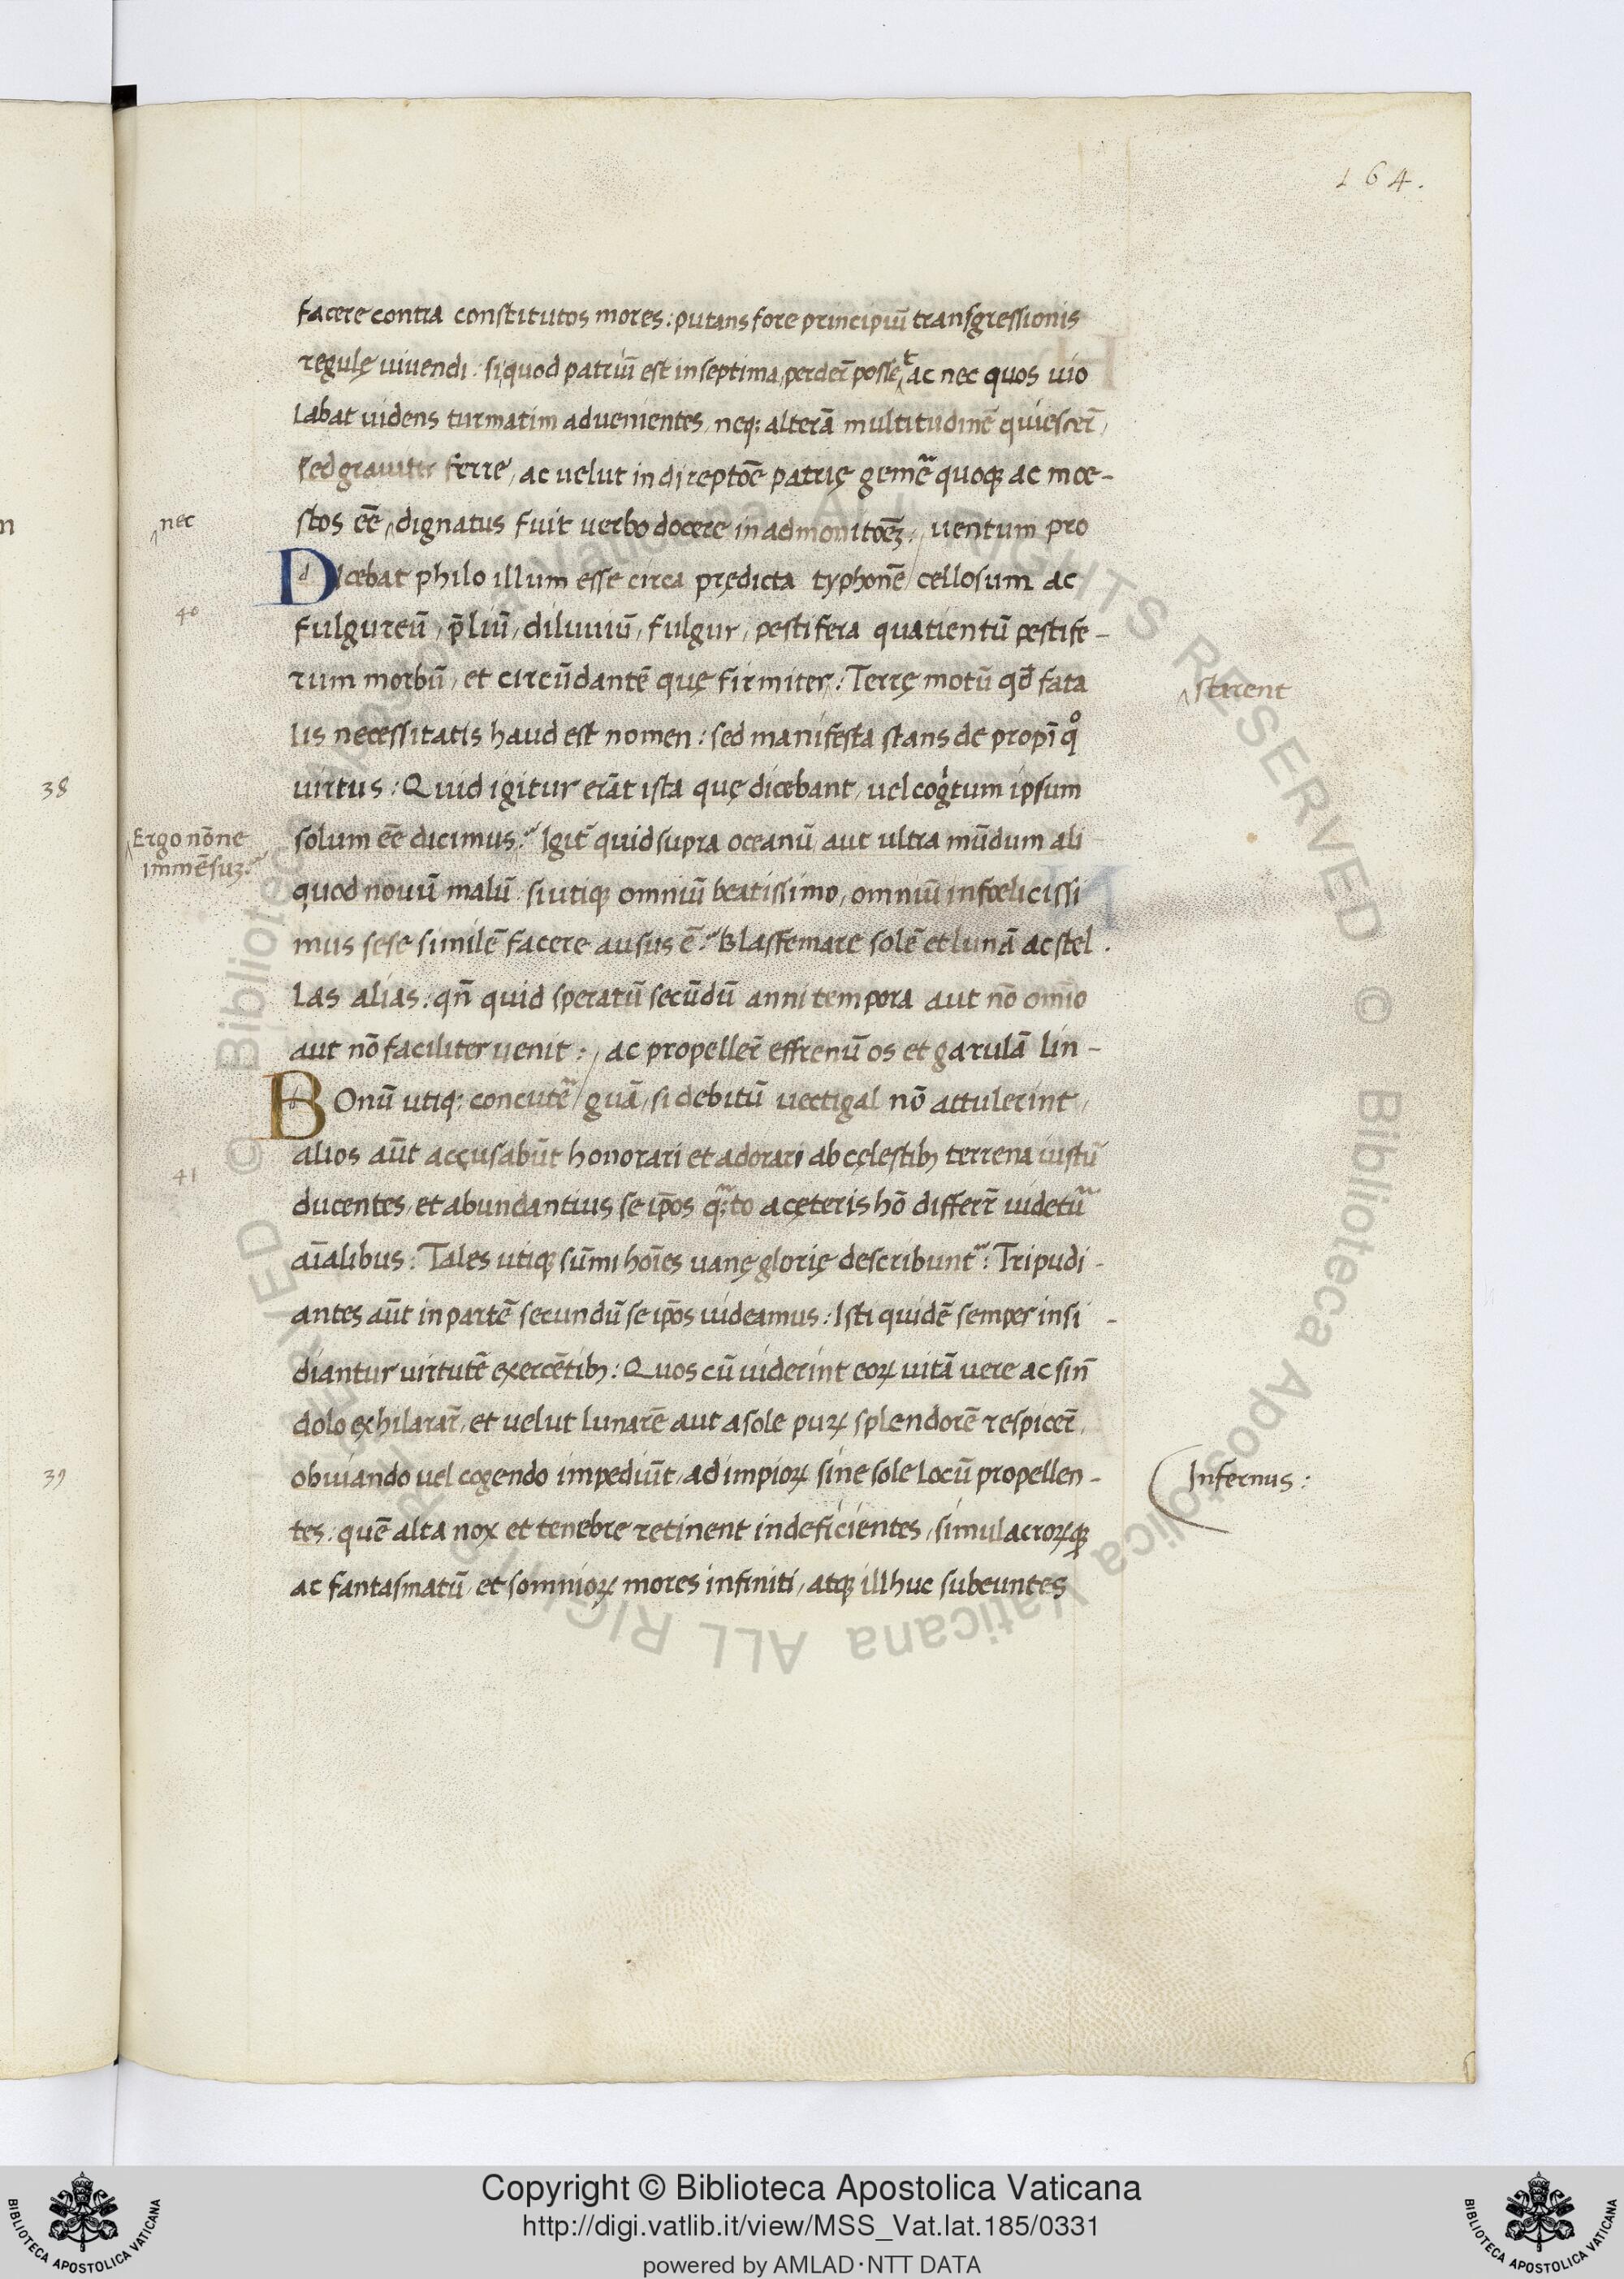 164.
facere contra constitutos mores: putans fore principiū transgressionis
regulę uiuendi: si quod patriū est in septima, perder̄ posset ac nec quos uio
labat uidens turmatim aduenientes, neq; alterā multitudinē quiescer̄,
sed grauiter ferre, ac velut in direptōe patrię gemē quoqꝫ ac moe-
nec
stos eē, dignatus fuit verbo docere in admonitōeꝫ: uentum pro
Dicebat philo illum esse circa prędicta typhonē / cellosum ac
40
fulgureū, p̄liū, diluuiū, fulgur, pestifera quatientū pestife-
rum morbū, et circūdantē quę firmiter: Terrę motū qd̄ fata
starent
lis necessitatis haud est nomen: sed manifesta stans de propī qͦ
38
uirtus: Quid igitur erāt ista quę dicebant, uel cogtum ipsum
Ergo nōne
immēsuꝫ?
solum eē dicimus? Igit̄ quid supra oceanū aut ultra mūdum ali
quod nouū malū si utiqꝫ omniū beatissimo, omniū infoelicissi
mus sese similē facere ausus ē? Blasfemare solē et lunā ac stel.
las alias: qn̄ quid speratū secūdū anni tempora aut nō omīo
aut nō faciliter uenit:, ac propeller̄ effrenū os et garulā lin-
Bonū utiq; concutē / guā, si debitū uectigal nō attulerint,
alios aūt accusabūt honorari et adorari ab cęlestibꝫ terrena iustū
41
ducentes, et abundantius se ip̄os q;to a ceteris hō differr̄ uidetu
aīalibus: Tales utiqꝫ sūmi hoīes uanę glorię describunt: Tripudi-
antes aūt in partē secundū se ip̄os uideamus: Isti quidē semper insi-
diantur virtutē exercētibꝫ: Quos cū uiderint eoꝝ vitā vere ac sin̄
dolo exhilarar̄, et velut lunarē aut a sole puꝝ splendorē respicer̄,
39
obuiando vel cogendo impediūt, ad impioꝝ sine sole locū propellen-
Infernus:
tes: quē alta nox et tenebre retinent indeficientes, simulacroꝝqꝫ
ac fantasmatū, et somnioꝝ mores infiniti, atqꝫ illhuc subeuntes
© Biblioteca Apostolica Vaticana ALL RIGHTS RESERVED
© Biblioteca Apostolica Vaticana ALL RIGHTS RESERVED
Copyright © Biblioteca Apostolica Vaticana
http://digi.vatlib.it/view/MSS_Vat.lat.185/0331
powered by AMLAD·NTT DATA
BIBLIOTECA APOSTOLICA VATICANA
BIBLIOTECA APOSTOLICA VATICANA